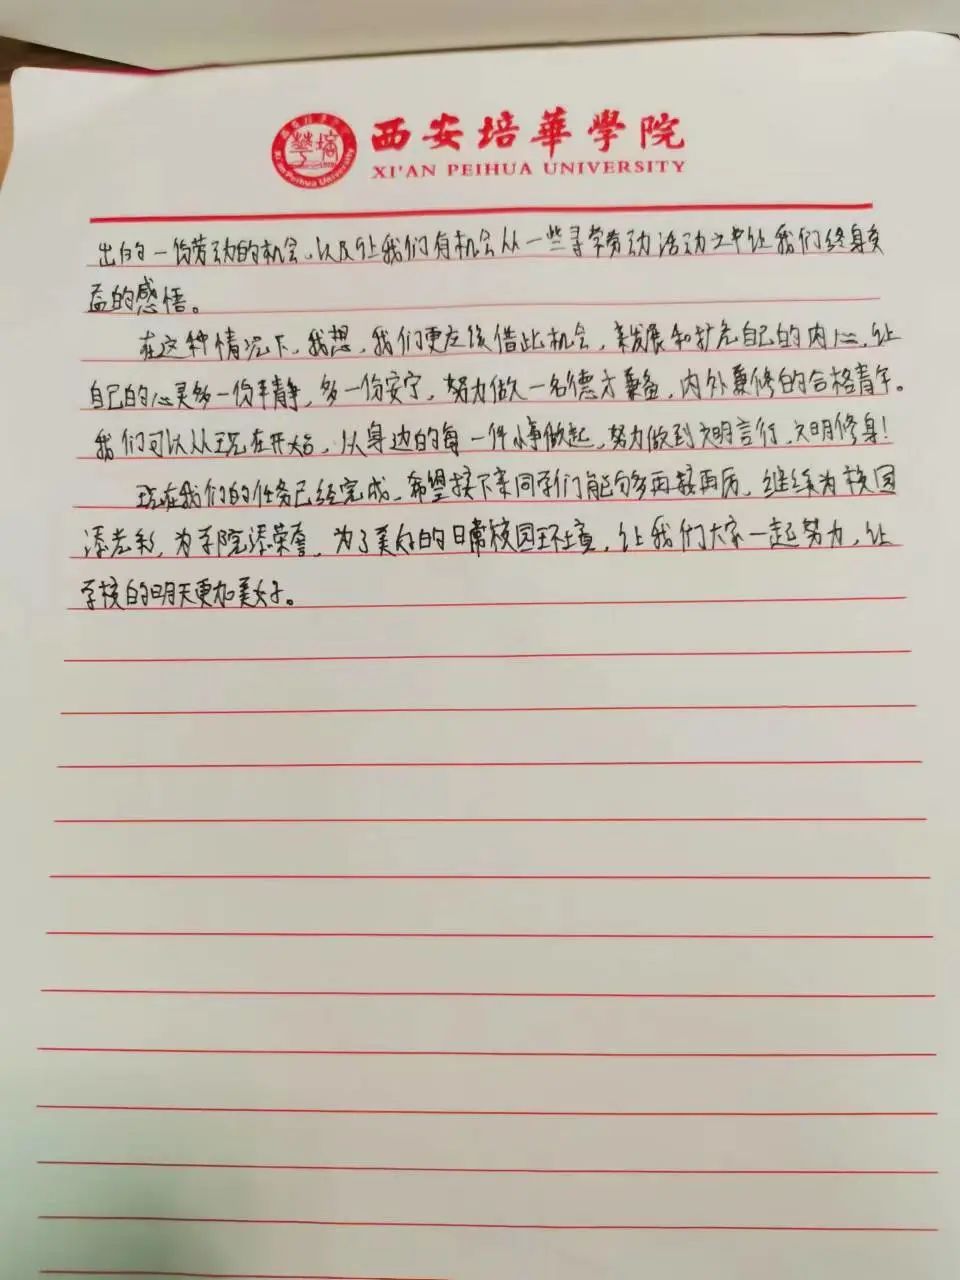 西安培華學院
XI'AN PEIHUA UNIVERSITY
出的一份劳动的机会，以及让我们有机会从一些寻常劳动活动之中让我们终身受
益的感悟。
在这种情况下，我想，我们更应该借此机会，来发展和扩充自己的内心，让
自己的心灵多一份平静，多一份安宁，努力做一名德才兼备，内外兼修的合格青年。
我们可以从现在开始，从身边的每一件小事做起，努力做到文明言行，文明修身！
现在我们的任务已经完成，希望接下来同学们能够多再接再厉，继续为校园
添光彩，为学院添荣誉，为了美好的日常校园环境，让我们大家一起努力，让
学校的明天更加美好。